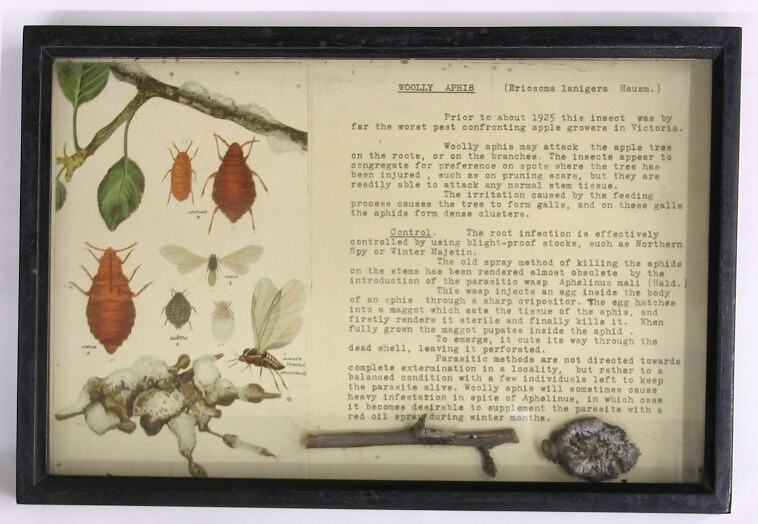 WOOLLY APHIS (Eriosoma lanigera Hausm.)
Prior to about 1925 this insect was by
far the worst pest confronting apple growers in Victoria.
Woolly aphis may attack the apple tree
on the roots, or on the branches. The insects appear to
congregate for preference on spots where the tree has
been injured , such as on pruning scars, but they are
readily able to attack any normal stem tissue.
The irritation caused by the feeding
process causes the tree to form galls, and on these galls
the aphids form dense clusters.
Control. The root infection is effectively
controlled by using blight-proof stocks, such as Northern
Spy or Winter Majetin.
The old spray method of killing the aphids
on the stems has been rendered almost obsolete by the
introduction of the parasitic wasp Aphelinus mali (Hald.)
This wasp injects an egg inside the body
of an aphis through a sharp ovipositor. The egg hatches
into a maggot which eats the tissue of the aphis, and
firstly renders it sterile and finally kills it. When
fully grown the maggot pupates inside the aphid .
To emerge, it cuts its way through the
dead shell, leaving it perforated.
Parasitic methods are not directed towards
complete extermination in a locality, but rather to a
balanced condition with a few individuals left to keep
the parasite alive. Woolly aphis will sometimes cause
heavy infestation in spite of Aphelinus, in which case
it becomes desirable to supplement the parasite with a
red oil spray during winter months.
WINGED
FEMALE